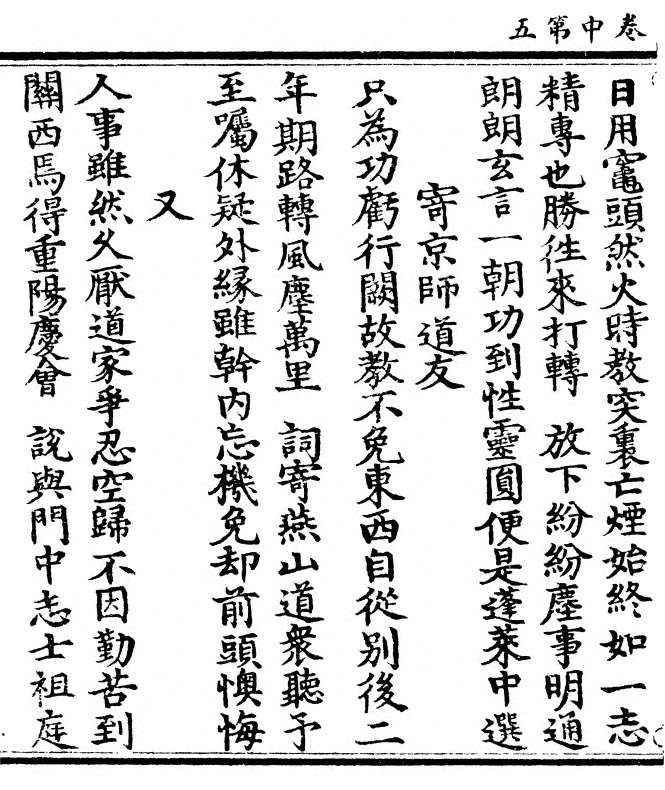 卷中第五
日用竃頭然火時教突裏亡煙始終如一志
精專也勝徃來打轉　放下紛紛塵事明通
朗朗玄言一朝功到性靈圓便是蓬萊中選
寄京師道友
只為功虧行闕故教不免東西自從别後二
年期路轉風塵萬里　詞寄燕山道衆聽予
至囑休疑外緣雖幹内忘機免却前頭懊悔
又
人事雖然久厭道家爭忍空歸不因勤苦到
關西焉得重陽慶會　說與門中志士祖庭